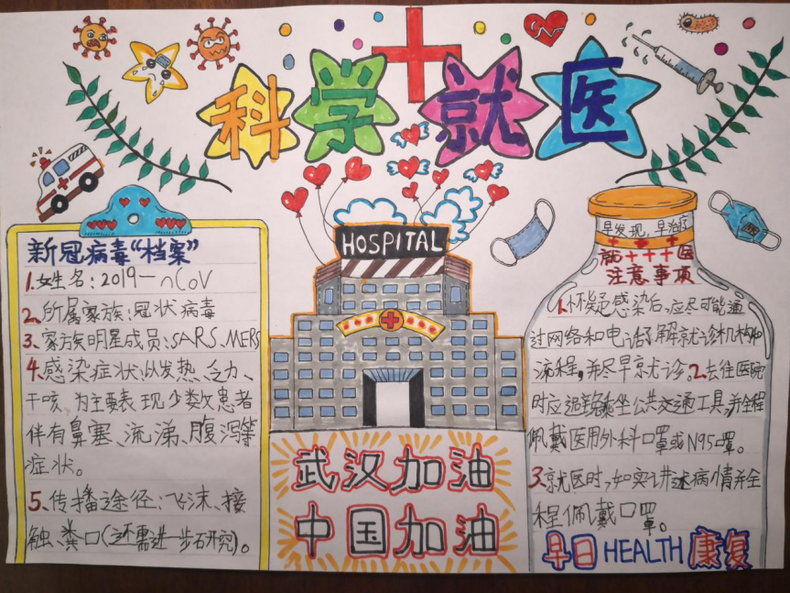 科学就医
新冠病毒“档案”
1.姓名:2019-nCoV
2.所属家族:冠状病毒
3、家族明星成员:SARS、MERS
4、感染症状:以发热、乏力、
干咳、为主要表现少数患者
伴有鼻塞、流涕、腹泻等
症状。
5、传播途径:飞沫、接
触、粪口(还需进一步研究)。
HOSPITAL
武汉加油
中国加油
早发现,早治区
就+++医
注意事项
1、怀疑感染后,应尽可能通
过网络和电话了解就诊机构和
流程,并尽早就诊。2、去往医院
时应避免乘坐公共交通工具,并全程
佩戴医用外科口罩或N95口罩。
3、就医时,如实讲述病情并全
程佩戴口罩。
早日HEALTH康复